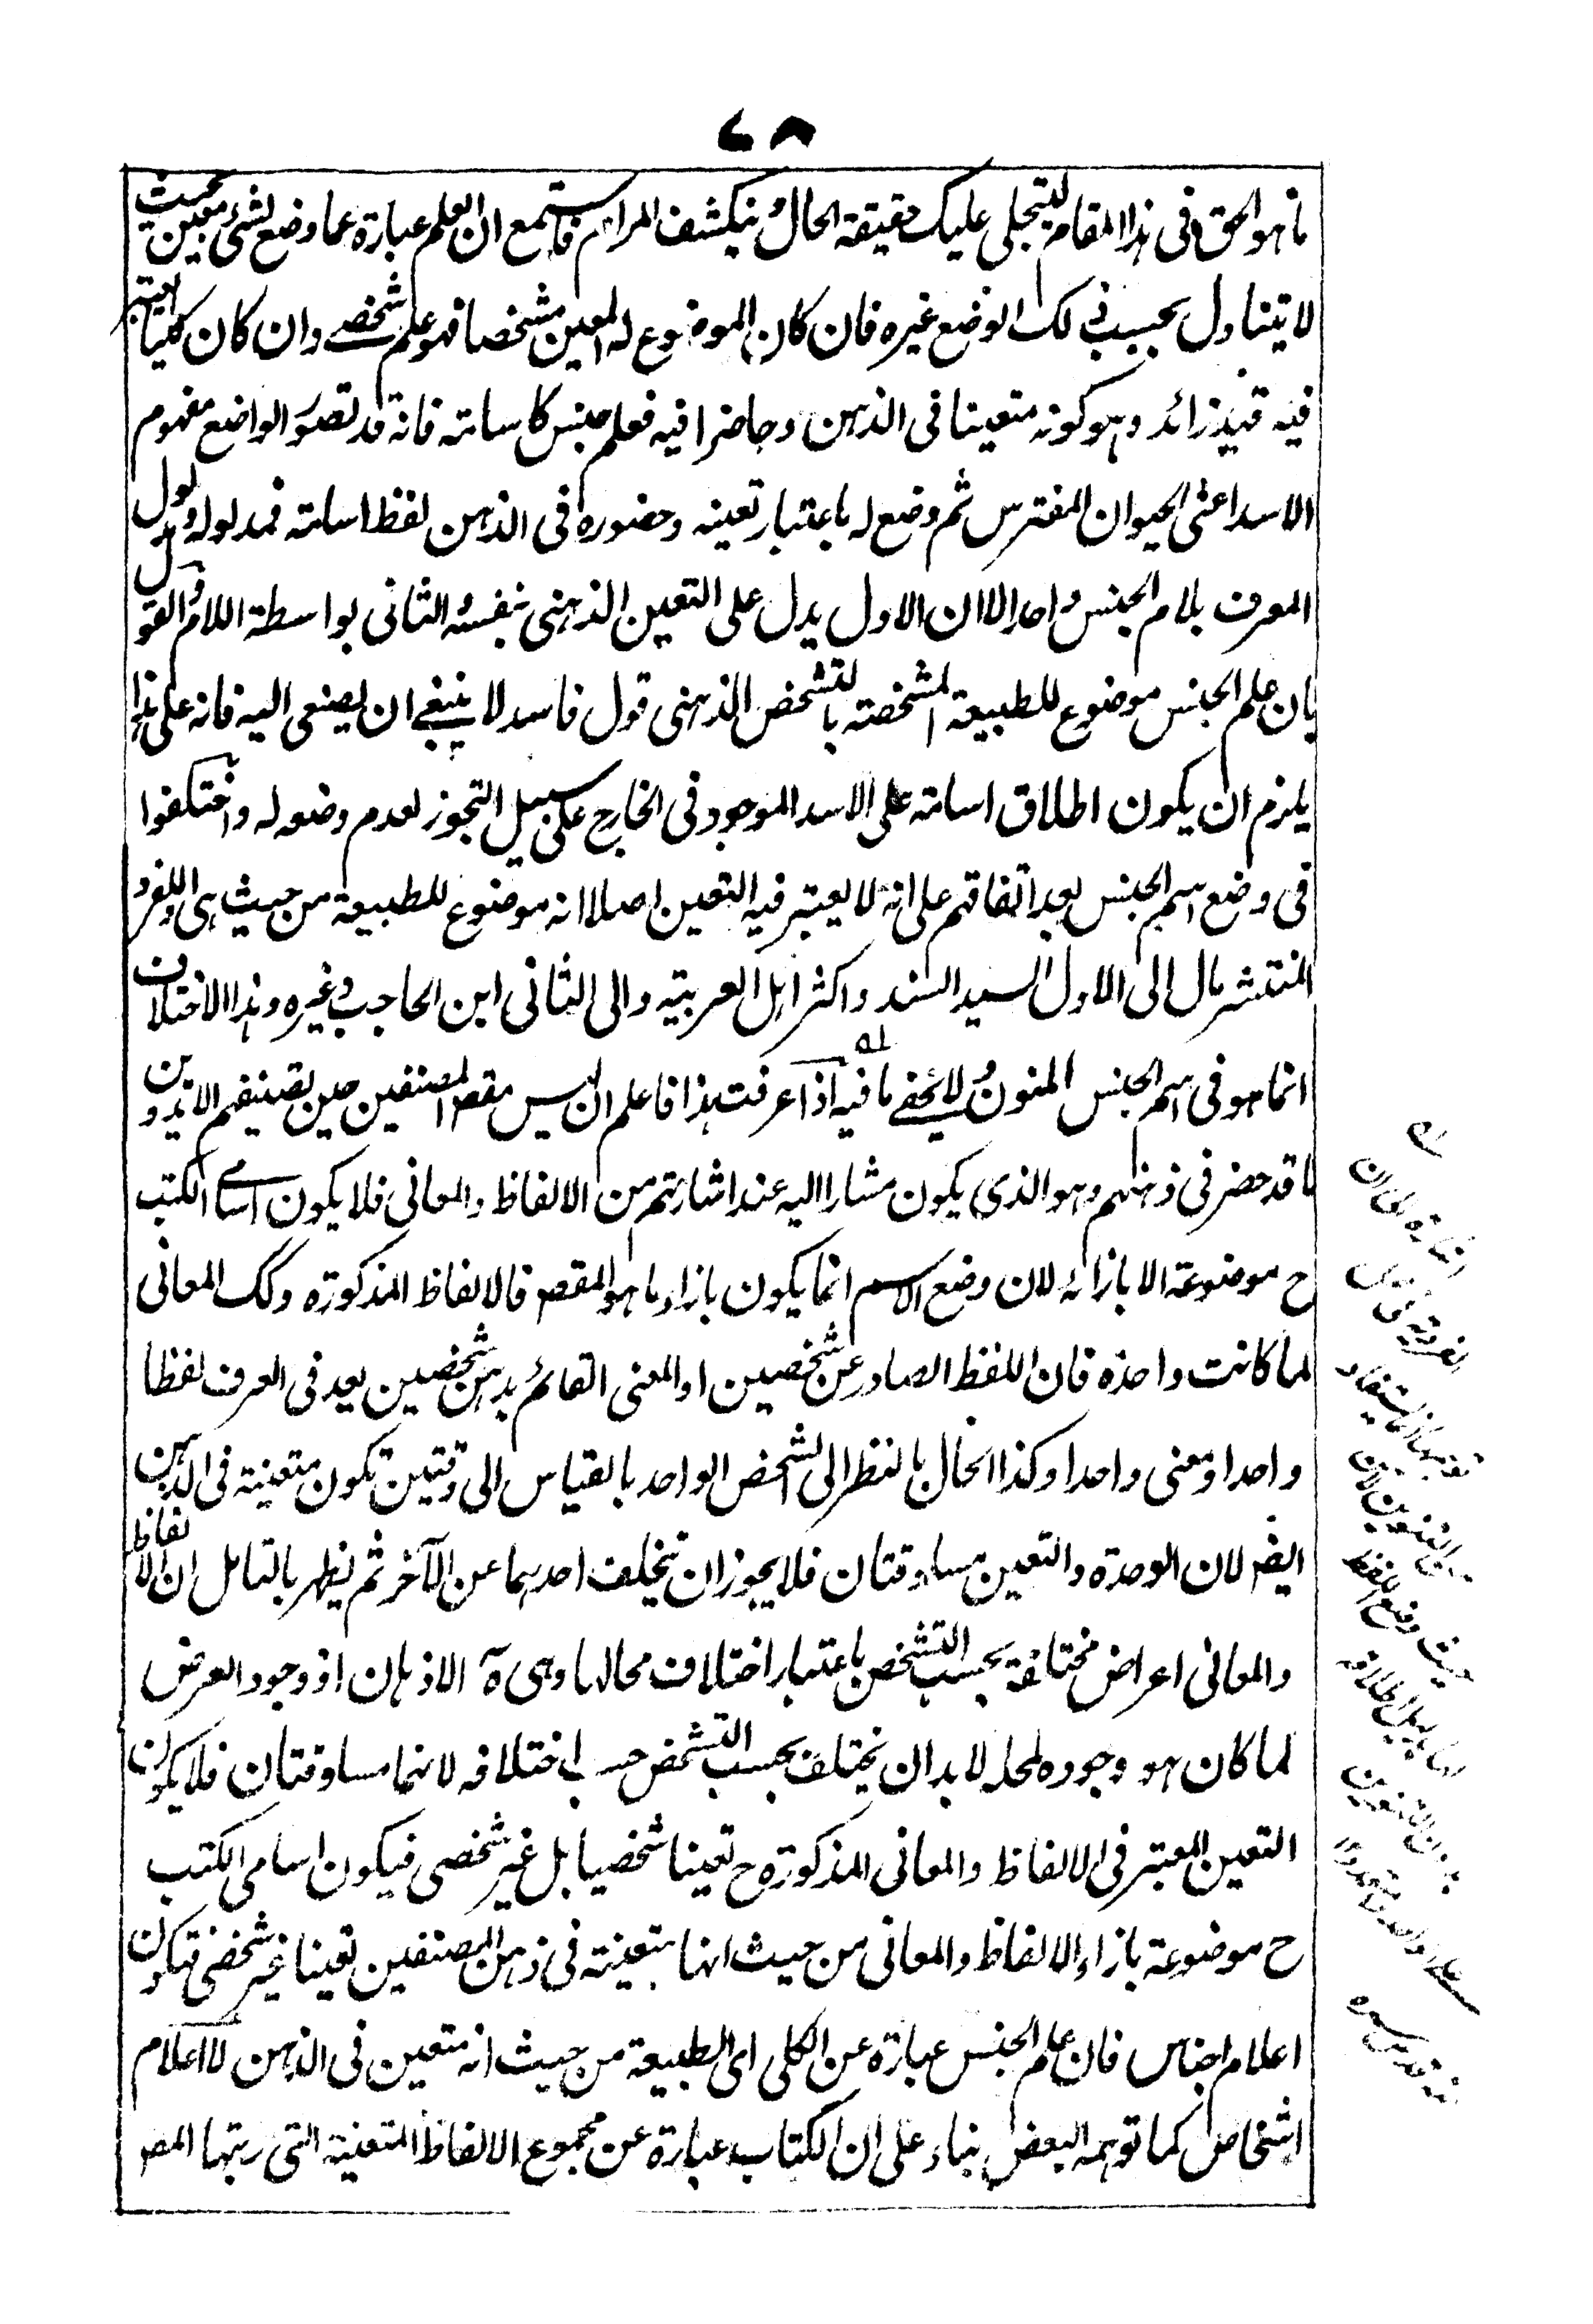 ما هو الحق فى هذا المقام ليتجلى عليك حقيقة الحال و ينكشف المرام فاستمع ان العلم عبارة عما وضع لشئ معين بحيث
لا يتناول بحسب ذلك الوضع غيره فان كان الموضوع له المعين مشخصا فهو علم شخصے وان كان كليا اعتبر
فيه قيد زائد وهو كونه متعينا فى الذهن وحاضرا فيه فعلم جنس كاسامة فانه قد تصور الواضع مفهوم
الاسد اعنى الحيوان المفترس ثم وضع له باعتبار تعينه وحضوره فى الذهن لفظ اسامة فمدلوله ومدلول
المعرف بلام الجنس واحد الا ان الاول يدل على التعين الذهنى بنفسه والثانى بواسطة اللام والقول
بان علم الجنس موضوع للطبيعة المشخصة بالتشخص الذهنى قول فاسد لا ينبغے ان يصغى اليه فانه على هذا
يلزم ان يكون اطلاق اسامة على الاسد الموجود فى الخارج على سبيل التجوز لعدم وضعه له واختلفوا
فى وضع اسم الجنس بعد اتفاقهم على انه لا يعتبر فيه التعين اصلا انه موضوع للطبيعة من حيث هى او للفرد
المنتشر مال الى الاول السيد السند واكثر اهل العربية والى الثانى ابن الحاجب وغيره وهذا الاختلاف
انما هو فى اسم الجنس المنون ولا يخفے ما فيه اذا عرفت هذا فاعلم ان ليس مقص المصنفين حين تصنيفهم الا تدوين
ما قد حضر فى ذهنهم وهو الذى يكون مشارا اليه عند اشارتهم من الالفاظ والمعانى فلا يكون اسامے الكتب
ح موضوعة الا بازائه لان وضع الاسم انما يكون بازاء ما هو المقص فالالفاظ المذكورة وكك المعانى
لما كانت واحدة فان اللفظ الصادر عن شخصين او المعنى القائم بذهن شخصين يعد فى العرف لفظا
واحدا ومعنى واحدا وكذا الحال بالنظر الى الشخص الواحد بالقياس الى وقتين تكون متعينة فى الذهن
ايض لان الوحدة والتعين مساوقتان فلا يجوز ان يتخلف احدهما عن الآخر ثم يظهر بالتامل ان الالفاظ
والمعانى اعراض مختلفة بحسب التشخص باعتبار اختلاف محالها وهى الاذهان اذ وجود العرض
لما كان هو وجوده لمحله لا بد ان يختلف بحسب التشخص حسب اختلافه لانهما مساوقتان فلا يكون
التعين المعتبر فى الالفاظ والمعانى المذكورة ح تعينا شخصيا بل غير شخصى فيكون اسامى الكتب
ح موضوعة بازاء الالفاظ والمعانى من حيث انها متعينة فى ذهن المصنفين تعينا غير شخصى فتكون
اعلام اجناس فان علم الجنس عبارة عن الكلى اى الطبيعة من حيث انه متعين فى الذهن لا اعلام
اشخاص كما توهمه البعض بناء على ان الكتاب عبارة عن مجموع الالفاظ المتعينة التى رتبها المص